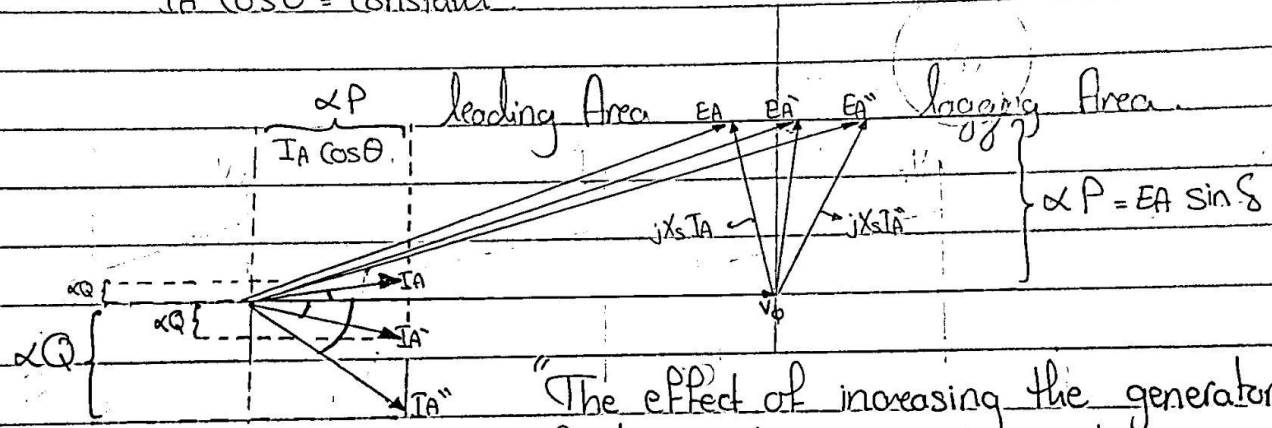 IA Cosθ = Constant
αP leading Area EA EA` EA" lagging Area.
IA Cosθ.
αP = EA sin δ
jXsIA jXsIA"
αQ IA
Vφ
αQ IA`
αQ
IA" "The effect of increasing the generator